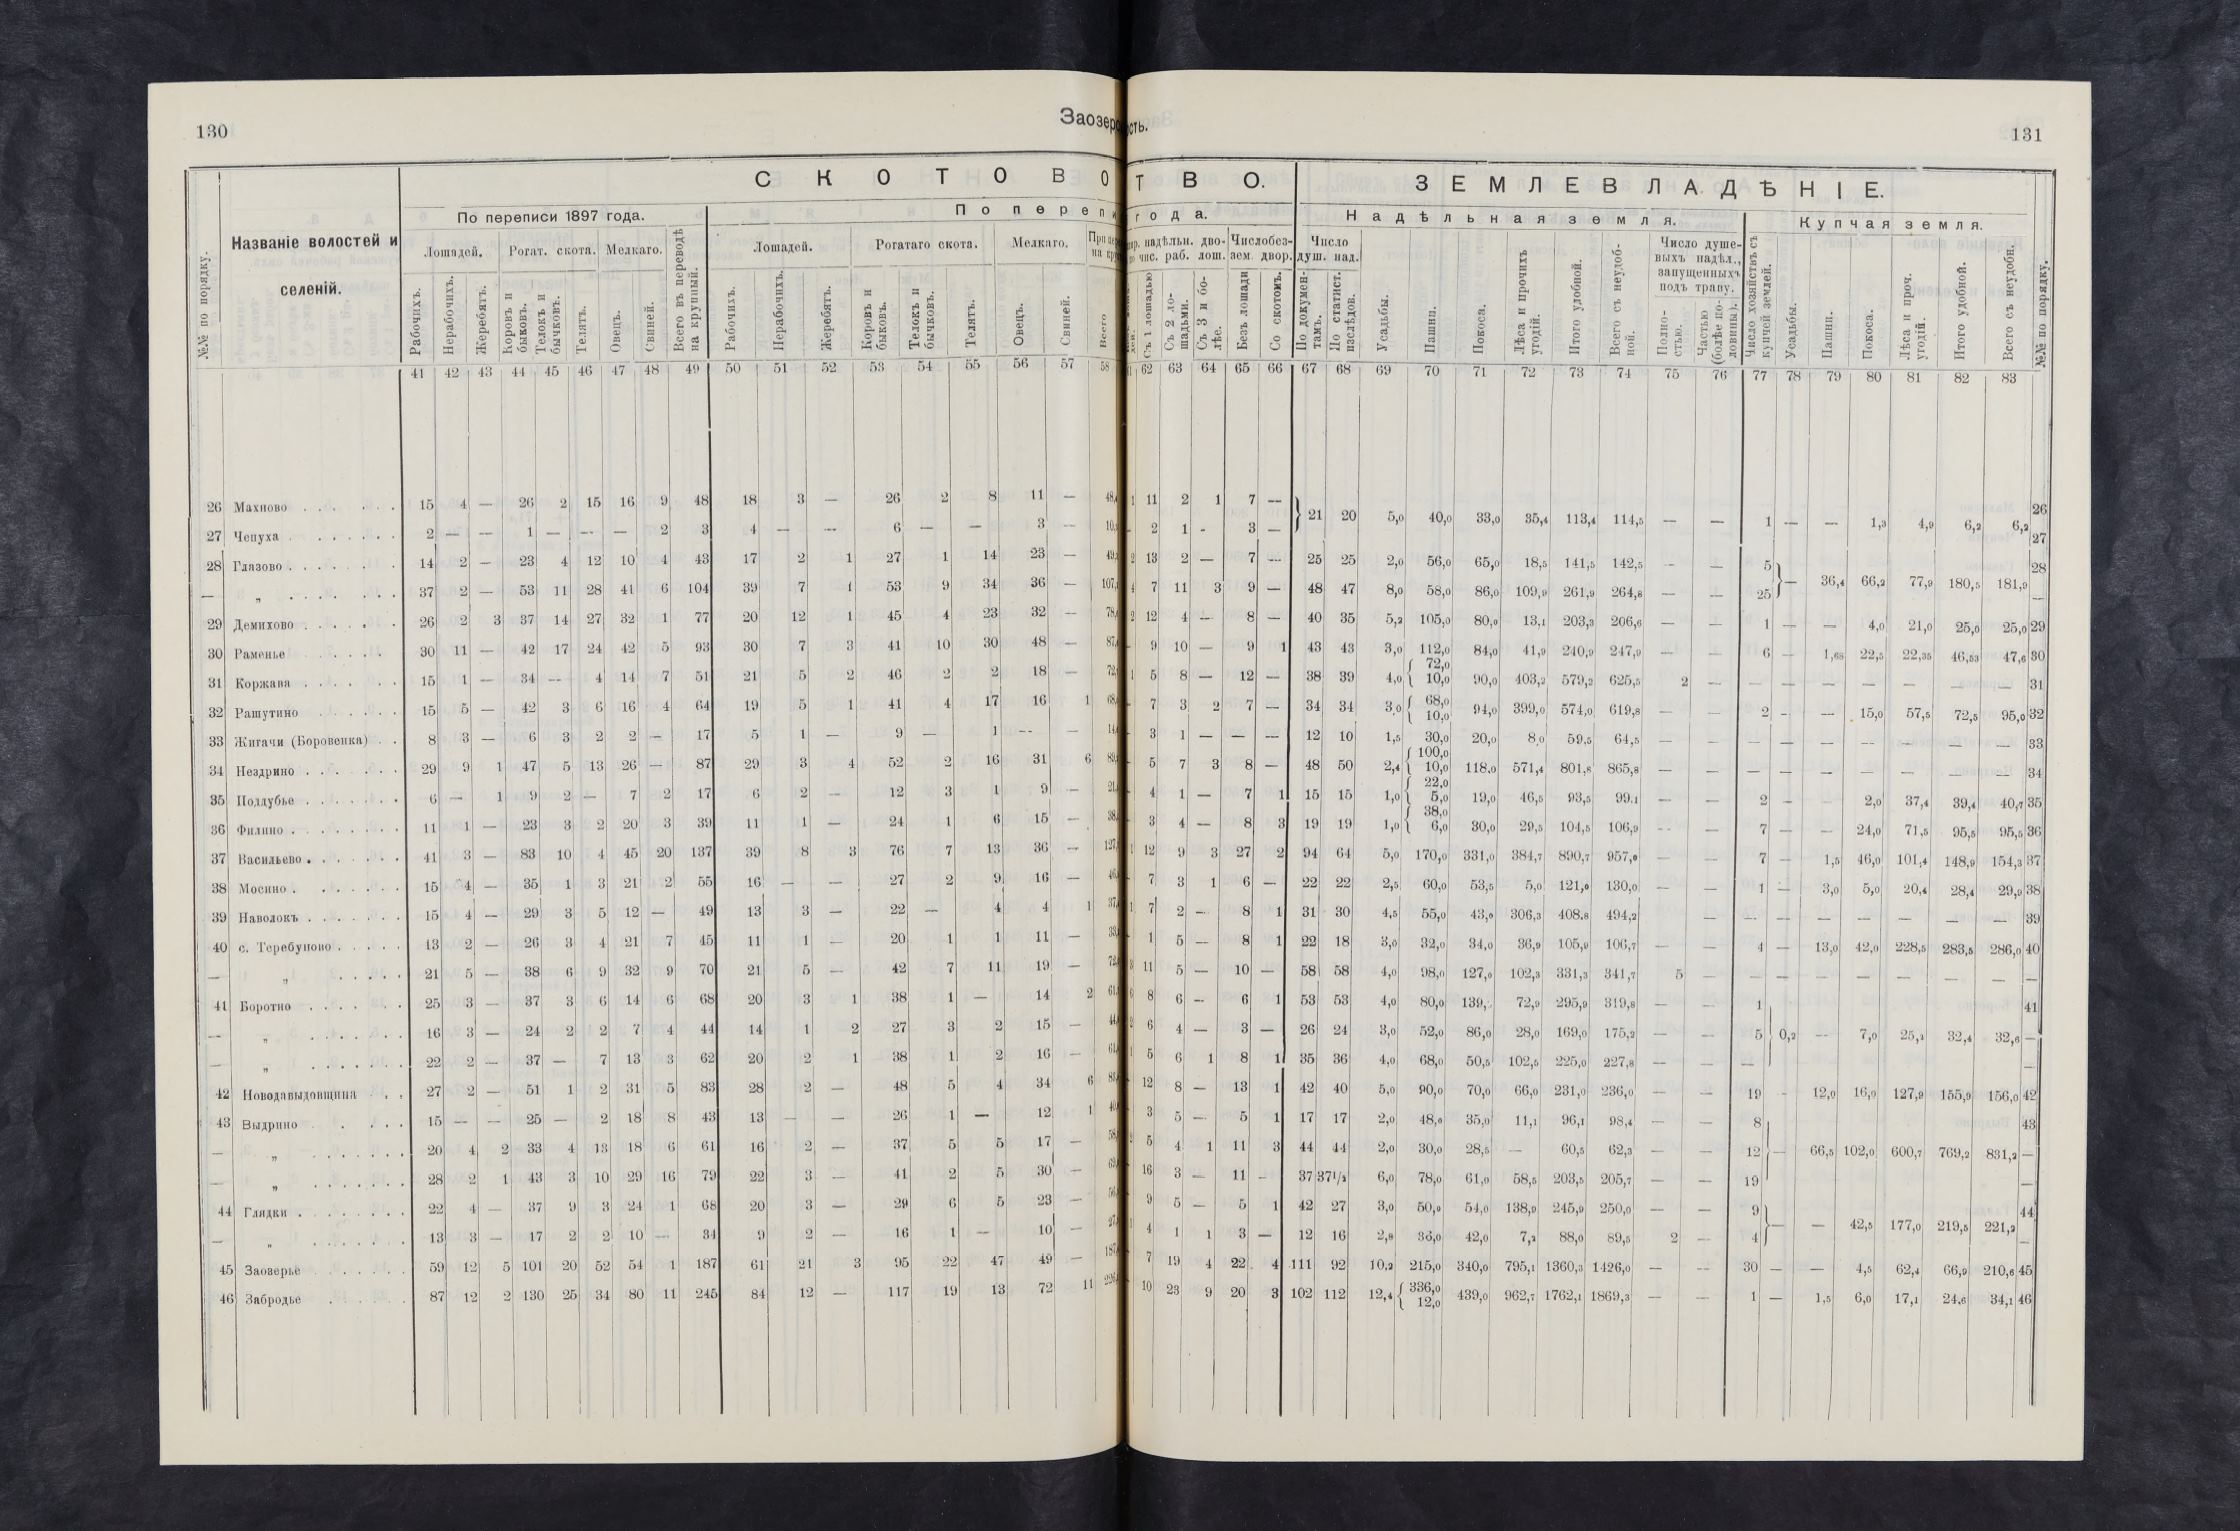 130
Заозерс
ость.
131
С К О Т О В О
Т В О.
З Е М Л Е В Л А Д Ѣ Н І Е.
№№ по порядку.
Названіе волостей и
селеній.
По переписи 1897 года.
По переписи
года.
Надѣльная земля.
Купчая земля.
Лошадей. Рогат. скота. Мелкаго.
Всего въ переводѣ на крупный.
Лошадей. Рогатаго скота. Мелкаго.
надѣльн. дво- Число без-
чис. раб. лош. зем. двор.
Число душ. над.
Число душе-
выхъ надѣл.,
запущенныхъ
подъ траву.
Число хозяйствъ съ купчей землей.
Рабочихъ. Нерабочихъ. Жеребятъ. Коровъ и быковъ. Телокъ и бычковъ. Телятъ. Овецъ. Свиней.
Рабочихъ. Нерабочихъ. Жеребятъ. Коровъ и быковъ. Телокъ и бычковъ. Телятъ. Овецъ. Свиней. Всего
Съ 1 лошадью Съ 2 ло-шадьми. Съ 3 и бо-лѣе. Безъ лошади Со скотомъ. По докумен-тамъ. По статист. изслѣдов. Усадьбы. Пашни. Покоса. Лѣса и прочихъ угодій. Итого удобной. Всего съ неудоб-ной. Полно-стью. Частью (болѣе по-ловины).
Усадьбы. Пашни. Покоса. Лѣса и проч. угодій. Итого удобной. Всего съ неудобн. №№ по порядку.
41 42 43 44 45 46 47 48 49 50 51 52 53 54 55 56 57 58 62 63 64 65 66 67 68 69 70 71 72 73 74 75 76 77 78 79 80 81 82 83
26 Махново 15 4 — 26 2 15 16 9 48 18 3 — 26 2 8 11 — 11 2 1 7 — } 21 20 5,0 40,0 33,0 35,4 113,4 114,5 — — 1 — — 1,3 4,9 6,2 6,2 26
27 Чепуха 2 — — 1 — — — 2 3 4 — — 6 — — 3 — 2 1 - 3 — 27
28 Глазово 14 2 — 23 4 12 10 4 43 17 2 1 27 1 14 23 — 13 2 — 7 — 25 25 2,0 56,0 65,0 18,5 141,5 142,5 — — 5 } — 36,4 66,2 77,9 180,5 181,9 28
— „ 37 2 — 53 11 28 41 6 104 39 7 1 53 9 34 36 — 7 11 3 9 — 48 47 8,0 58,0 86,0 109,9 261,9 264,8 — — 25 —
29 Демихово 26 2 3 37 14 27 32 1 77 20 12 1 45 4 23 32 — 12 4 — 8 — 40 35 5,2 105,0 80,0 13,1 203,3 206,6 — — 1 — — 4,0 21,0 25,0 25,0 29
30 Раменье 30 11 — 42 17 24 42 5 93 30 7 3 41 10 30 48 — 9 10 — 9 1 43 43 3,0 112,0 84,0 41,9 240,9 247,9 — — 6 — 1,68 22,5 22,35 46,53 47,6 30
31 Коржава 15 1 — 34 — 4 14 7 51 21 5 2 46 2 2 18 — 5 8 — 12 — 38 39 4,0 { 72,0 10,0 90,0 403,2 579,2 625,5 2 — — — — — — — — 31
32 Рашутино 15 5 — 42 3 6 16 4 64 19 5 1 41 4 17 16 1 7 3 2 7 — 34 34 3,0 { 68,0 10,0 94,0 399,0 574,0 619,8 — — 2 — — 15,0 57,5 72,5 95,0 32
33 Жигачи (Боровенка) 8 3 — 6 3 2 2 — 17 5 1 — 9 — 1 — — 3 1 — — — 12 10 1,5 30,0 20,0 8,0 59,5 64,5 — — — — — — — — — 33
34 Нездрино 29 9 1 47 5 13 26 — 87 29 3 4 52 2 16 31 6 5 7 3 8 — 48 50 2,4 { 100,0 10,0 118,0 571,4 801,8 865,8 — — — — — — — — — 34
35 Поддубье 6 — 1 9 2 — 7 2 17 6 2 — 12 3 1 9 — 4 1 — 7 1 15 15 1,0 { 22,0 5,0 19,0 46,5 93,5 99,1 — — 2 — — 2,0 37,4 39,4 40,7 35
36 Филино 11 1 — 23 3 2 20 3 39 11 1 — 24 1 6 15 — 3 4 — 8 3 19 19 1,0 { 38,0 6,0 30,0 29,5 104,5 106,9 — — 7 — — 24,0 71,5 95,5 95,5 36
37 Васильево 41 3 — 83 10 4 45 20 137 39 8 3 76 7 13 36 — 12 9 3 27 2 94 64 5,0 170,0 331,0 384,7 890,7 957,0 — — 7 — 1,5 46,0 101,4 148,9 154,3 37
38 Мосино 15 4 — 35 1 3 21 2 55 16 — — 27 2 9 16 — 7 3 1 6 — 22 22 2,5 60,0 53,5 5,0 121,0 130,0 — — 1 — 3,0 5,0 20,4 28,4 29,9 38
39 Наволокъ 15 4 — 29 3 5 12 — 49 13 3 — 22 — 4 4 1 7 2 — 8 1 31 30 4,5 55,0 43,0 306,3 408,8 494,2 — — — — — — — — 39
40 с. Теребуново 13 2 — 26 3 4 21 7 45 11 1 — 20 1 1 11 — 1 5 — 8 1 22 18 3,0 32,0 34,0 36,9 105,9 106,7 — — 4 — 13,0 42,0 228,5 283,5 286,0 40
— „ 21 5 — 38 6 9 32 9 70 21 5 — 42 7 11 19 — 11 5 — 10 — 58 58 4,0 98,0 127,0 102,3 331,3 341,7 5 — — — — — — — — —
41 Боротно 25 3 — 37 3 6 14 6 68 20 3 1 38 1 — 14 2 8 6 — 6 1 53 53 4,0 80,0 139, 72,9 295,9 319,8 — — 1 41
— „ 16 3 — 24 2 2 7 4 44 14 1 2 27 3 2 15 — 6 4 — 3 — 26 24 3,0 52,0 86,0 28,0 169,0 175,2 — — 5 0,2 — 7,0 25,2 32,4 32,6 —
— „ 22 2 — 37 — 7 13 3 62 20 2 1 38 1 2 16 — 5 6 1 8 1 35 36 4,0 68,0 50,5 102,5 225,0 227,8 — — — —
42 Новодавыдовщина 27 2 — 51 1 2 31 5 83 28 2 — 48 5 4 34 6 12 8 — 13 1 42 40 5,0 90,0 70,0 66,0 231,0 236,0 — — 19 — 12,0 16,0 127,9 155,9 156,0 42
43 Выдрино 15 — — 25 — 2 18 8 43 13 — — 26 1 — 12 1 3 5 — 5 1 17 17 2,0 48,0 35,0 11,1 96,1 98,4 — — 8 43
— „ 20 4 2 33 4 13 18 6 61 16 2 — 37 5 5 17 — 5 4 1 11 3 44 44 2,0 30,0 28,5 — 60,5 62,3 — — 12 — 66,5 102,0 600,7 769,2 831,2 —
— „ 28 2 1 43 3 10 29 16 79 22 3 — 41 2 5 30 — 16 3 — 11 — 37 37 1/2 6,0 78,0 61,0 58,5 203,5 205,7 — — 19 —
44 Глядки 22 4 — 37 9 3 24 1 68 20 3 — 29 6 5 23 — 9 5 — 5 1 42 27 3,0 50,0 54,0 138,9 245,9 250,0 — — 9 } — — 42,5 177,0 219,5 221,2 44
— „ 13 3 — 17 2 2 10 — 34 9 2 — 16 1 — 10 — 4 1 1 3 — 12 16 2,8 36,0 42,0 7,2 88,0 89,5 2 — 4 —
45 Заозерье 59 12 5 101 20 52 54 1 187 61 21 3 95 22 47 49 — 7 19 4 22 4 111 92 10,2 215,0 340,0 795,1 1360,3 1426,0 — — 30 — — 4,5 62,4 66,9 210,6 45
46 Забродье 87 12 2 130 25 34 80 11 245 84 12 — 117 19 13 72 11 10 23 9 20 3 102 112 12,4 { 336,0 12,0 439,0 962,7 1762,1 1869,3 — — 1 — 1,5 6,0 17,1 24,6 34,1 46